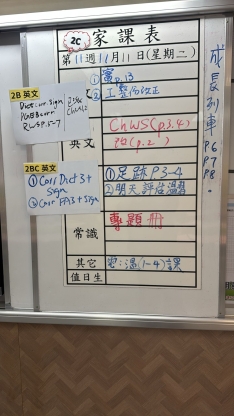 2C 家課表
第11週11月11日(星期二)
①書p.13
②工整的改正
英文
ChWS(p.3,4)
①足跡P3-4
②明天評估溫習
常識
專題冊
其它
值日生
成長列車 P6 P7 P8
2B 英文
Dict. corr. sign
RWSP.5-7
2BC 英文
① Corr Dict 3+
Sign
② Corr FA3+ Sign